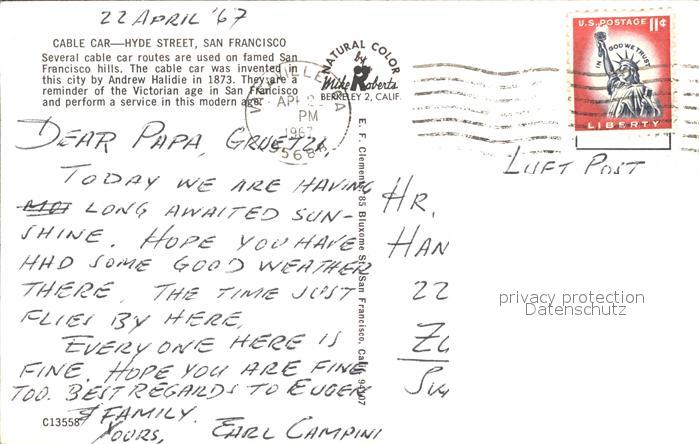 22 APRIL '67
CABLE CAR—HYDE STREET, SAN FRANCISCO
Several cable car routes are used on famed San
Francisco hills. The cable car was invented in
this city by Andrew Halidie in 1873. They are a
reminder of the Victorian age in San Francisco
and perform a service in this modern age.
NATURAL COLOR
by
Mike Roberts
BERKELEY 2, CALIF.
PM
1967
95688
U.S. POSTAGE 11¢
IN GOD WE TRUST
LIBERTY
LUFT POST
DEAR PAPA, GRUETZI,
TODAY WE ARE HAVING
LONG AWAITED SUN-
SHINE. HOPE YOU HAVE
HAD SOME GOOD WEATHER
THERE. THE TIME JUST
FLIES BY HERE.
EVERYONE HERE IS
FINE. HOPE YOU ARE FINE
TOO. BEST REGARDS TO EUGEN
& FAMILY.
YOURS, EARL CAMPINI
C13558
E. F. Clements, 85 Bluxome St., San Francisco, Calif. 94107
HR.
HAN
22
ZU
privacy protection
Datenschutz